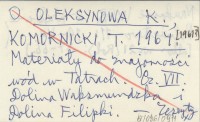 OLEKSYNOWA K.,
KOMORNICKI T. 1964 [1961?]
Materiały do znajomości
wód w Tatrach Cz. VII
Dolina Waksmundzka i
Dolina Filipki. — Zeszyty